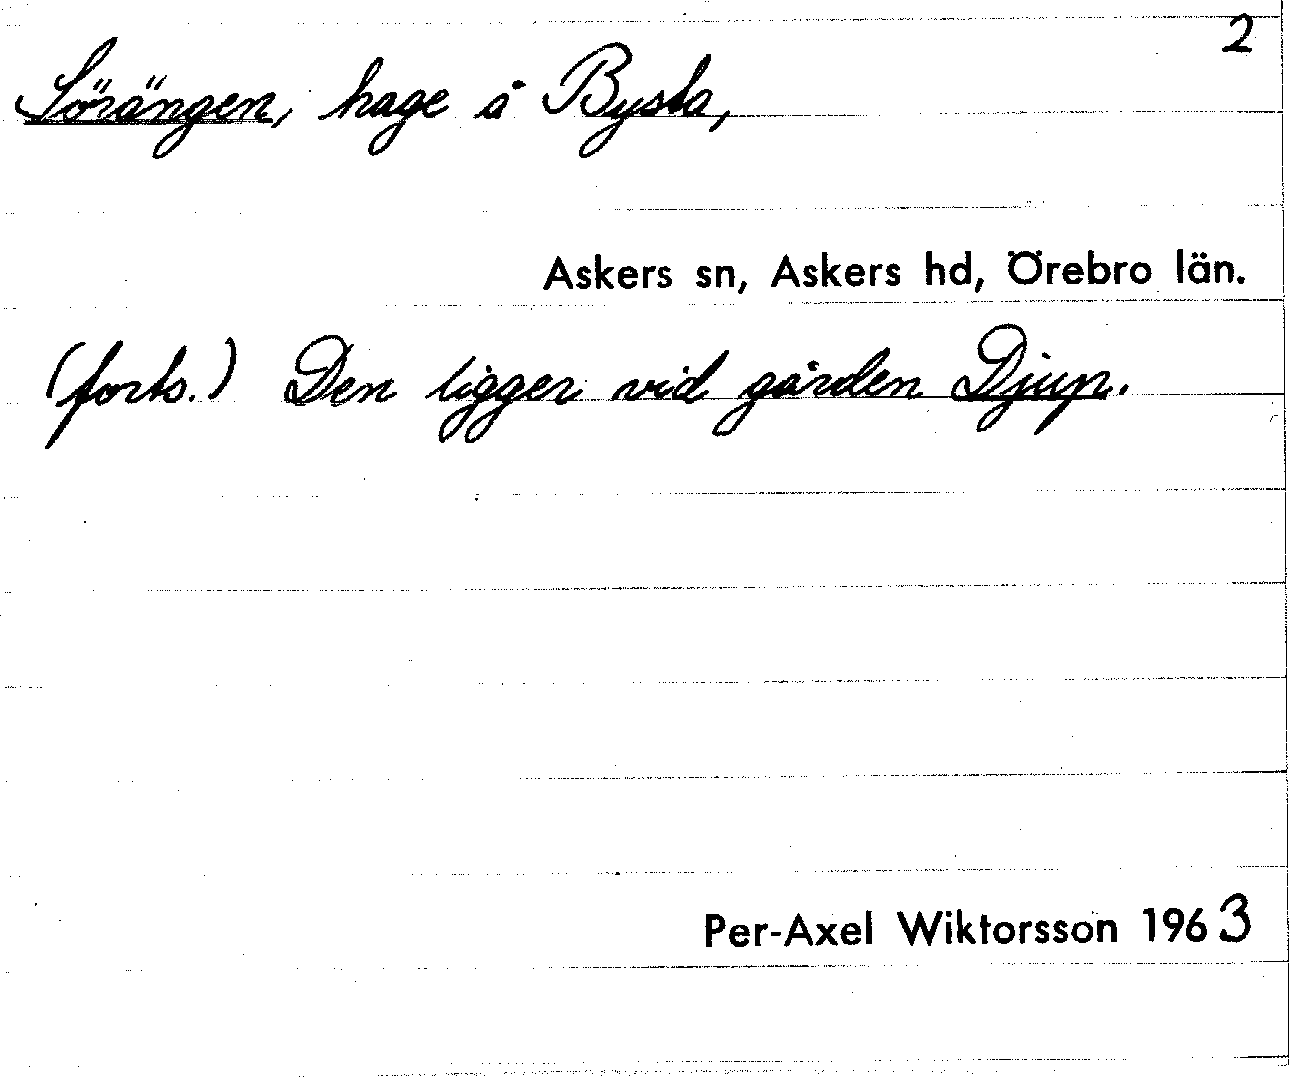 2
Sörängen, hage å Bysta,
Askers sn, Askers hd, Örebro län.
(forts.) Den ligger vid gården Djup.
Per-Axel Wiktorsson 1963